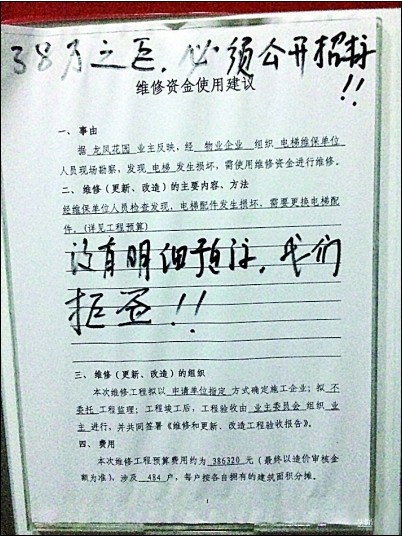 38万之巨,必须公开招标
!!
维修资金使用建议
一、事由
据 龙凤花园 业主反映,经 物业企业 组织 电梯维保单位
人员现场勘察,发现 电梯 发生损坏,需使用维修资金进行维修。
二、维修(更新、改造)的主要内容、方法
经维保单位人员检查发现,电梯配件发生损坏,需要更换电梯配
件。(详见工程预算)
没有明细预算,我们
拒签!!
三、维修(更新、改造)的组织
本次维修工程拟以 申请单位指定 方式确定施工企业;拟 不
委托 工程监理;工程竣工后,工程验收由 业主委员会 组织 业
主 进行,并共同签署《维修和更新、改造工程验收报告》。
四、费用
本次维修工程预算费用约为 386320 元(最终以造价审核金
额为准),涉及 484 户,每户按各自拥有的建筑面积分摊。
1